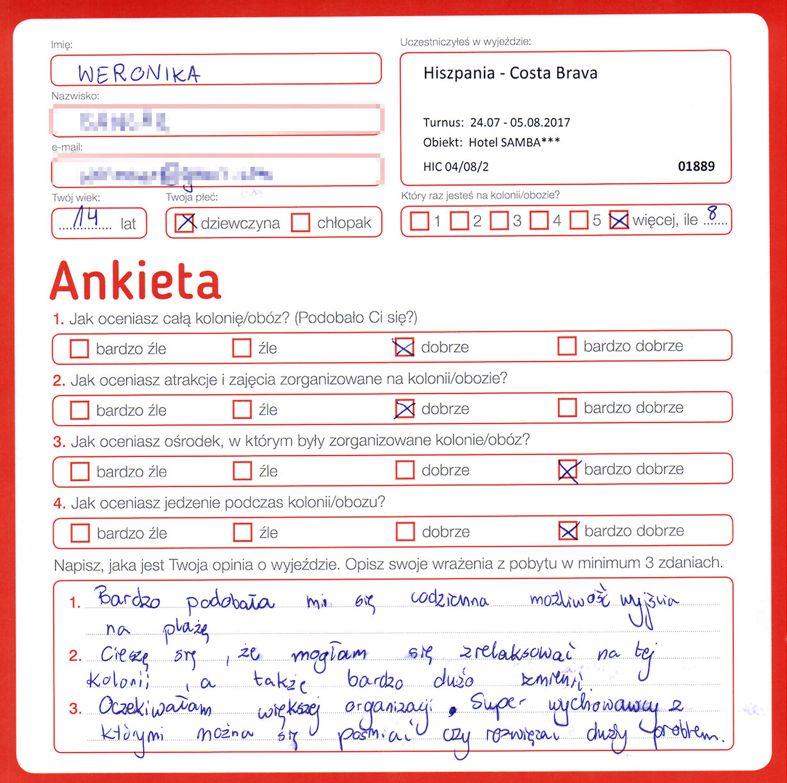 Imię:
WERONIKA
Nazwisko:
e-mail:
Twój wiek:
14 lat
Twoja płeć:
dziewczyna chłopak
Uczestniczyłeś w wyjeździe:
Hiszpania - Costa Brava
Turnus: 24.07 - 05.08.2017
Obiekt: Hotel SAMBA***
HIC 04/08/2 01889
Który raz jesteś na kolonii/obozie?
1 2 3 4 5 więcej, ile 8
Ankieta
1. Jak oceniasz całą kolonię/obóz? (Podobało Ci się?)
bardzo źle źle dobrze bardzo dobrze
2. Jak oceniasz atrakcje i zajęcia zorganizowane na kolonii/obozie?
bardzo źle źle dobrze bardzo dobrze
3. Jak oceniasz ośrodek, w którym były zorganizowane kolonie/obóz?
bardzo źle źle dobrze bardzo dobrze
4. Jak oceniasz jedzenie podczas kolonii/obozu?
bardzo źle źle dobrze bardzo dobrze
Napisz, jaka jest Twoja opinia o wyjeździe. Opisz swoje wrażenia z pobytu w minimum 3 zdaniach.
1. Bardzo podobała mi się codzienna możliwość wyjścia
na plażę
2. Cieszę się, że mogłam się zrelaksować na tej
kolonii, a także bardzo dużo
3. Oczekiwałam większej organizacji. Super wychowawcy z
którymi można się pośmiać czy rozwiązać duży problem.